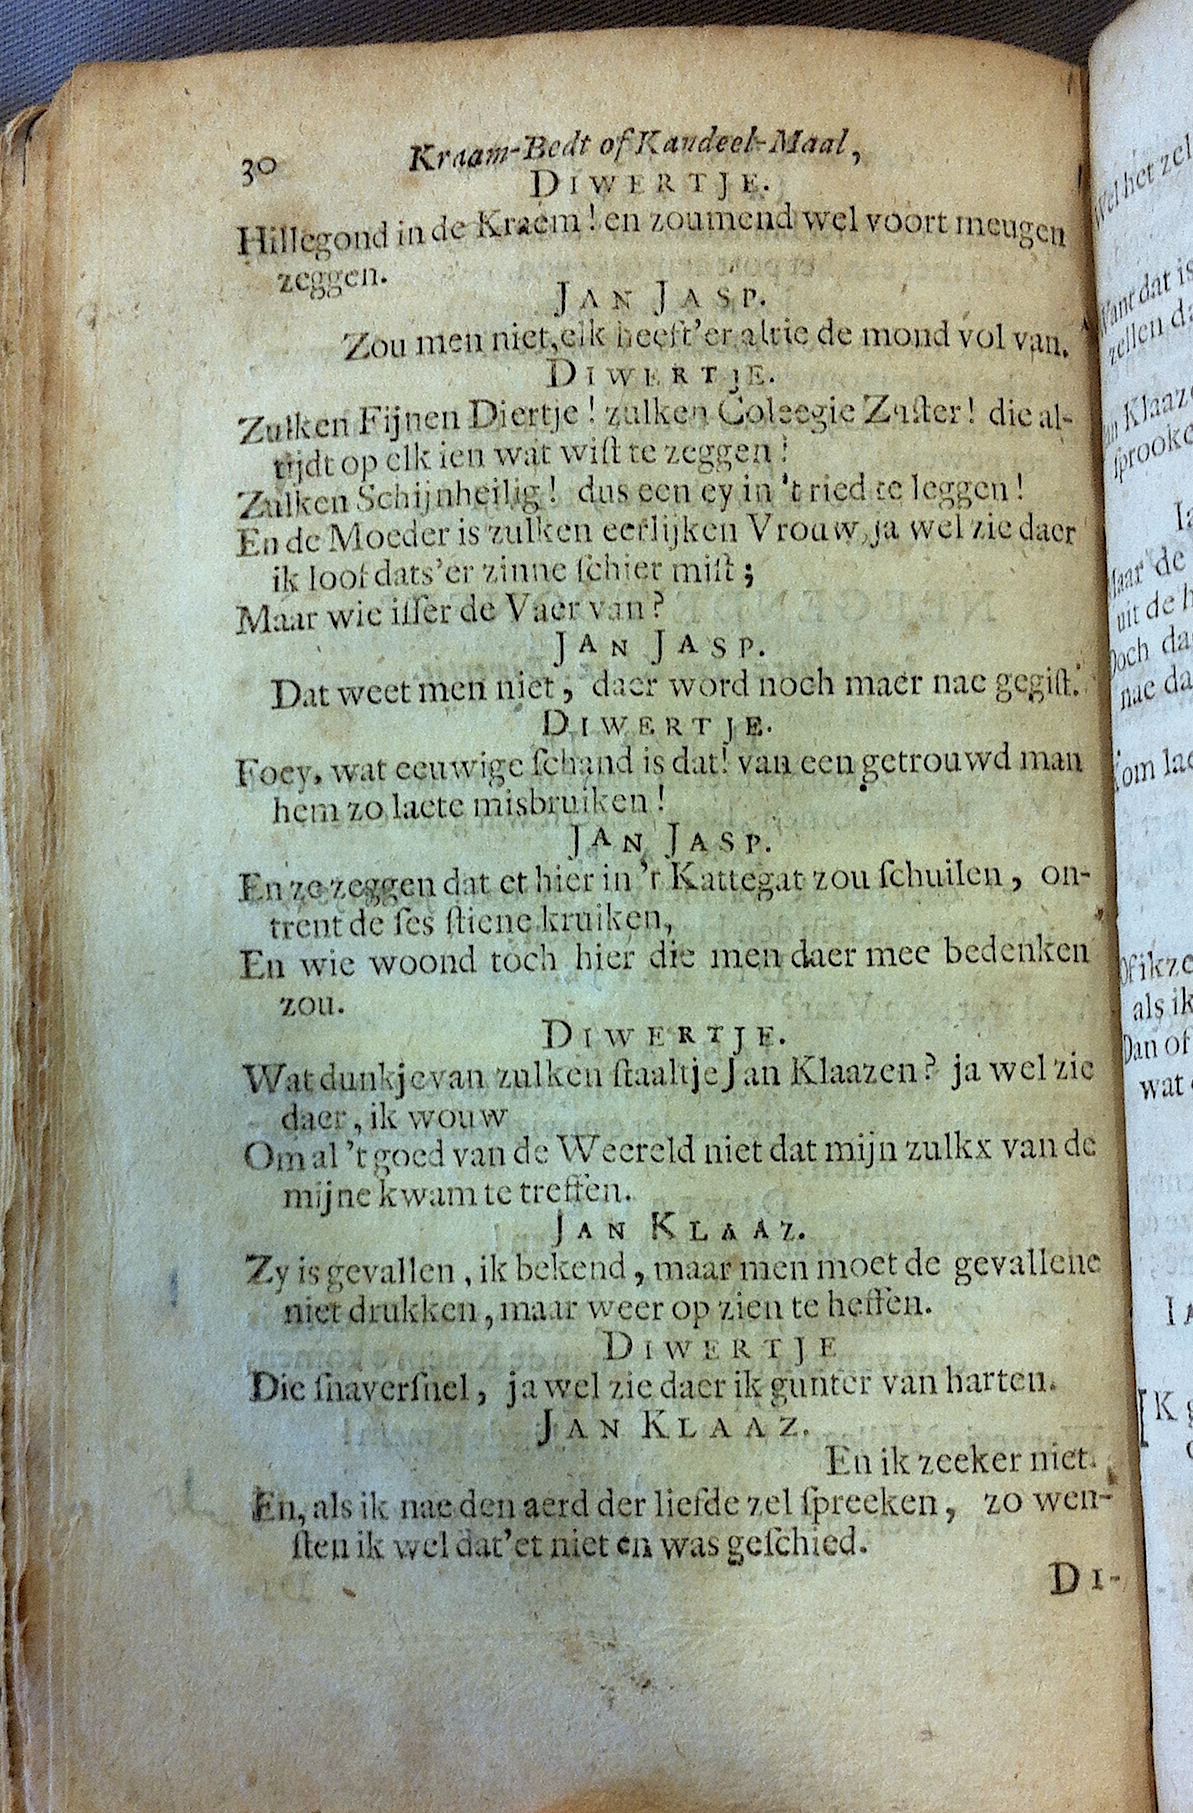 30 Kraam-Bedt of Kandeel-Maal,
DIWERTJE.
Hillegond in de Kraem! en zoumend wel voort meugen
zeggen.
JAN JASP.
Zou men niet, elk heeft'er altie de mond vol van.
DIWERTJE.
Zulken Fijnen Diertje! zulken Coleegie Zuster! die al-
tijdt op elk ien wat wist te zeggen!
Zulken Schijnheilig! dus een ey in 't ried te leggen!
En de Moeder is zulken eerlijken Vrouw, ja wel zie daer
ik loof dats'er zinne schier mist;
Maar wie isser de Vaer van?
JAN JASP.
Dat weet men niet, daer word noch maer nae gegist.
DIWERTJE.
Foey, wat eeuwige schand is dat! van een getrouwd man
hem zo laete misbruiken!
JAN JASP.
En ze zeggen dat et hier in 't Kattegat zou schuilen, on-
trent de ses stiene kruiken,
En wie woond toch hier die men daer mee bedenken
zou.
DIWERTJE.
Wat dunkje van zulken staaltje Jan Klaazen? ja wel zie
daer, ik wouw
Om al 't goed van de Weereld niet dat mijn zulkx van de
mijne kwam te treffen.
JAN KLAAZ.
Zy is gevallen, ik bekend, maar men moet de gevallene
niet drukken, maar weer op zien te heffen.
DIWERTJE
Die snaversnel, ja wel zie daer ik gunter van harten.
JAN KLAAZ.
En ik zeeker niet.
En, als ik nae den aerd der liefde zel spreeken, zo wen-
sten ik wel dat'et niet en was geschied.
DI-
Wel het zel
Want dat is
zellen d
Klaaz
sprooke
de
uit de h
Doch da
nae da
Kom lae
Of ik ze
als ik
Dan of
wat
K g